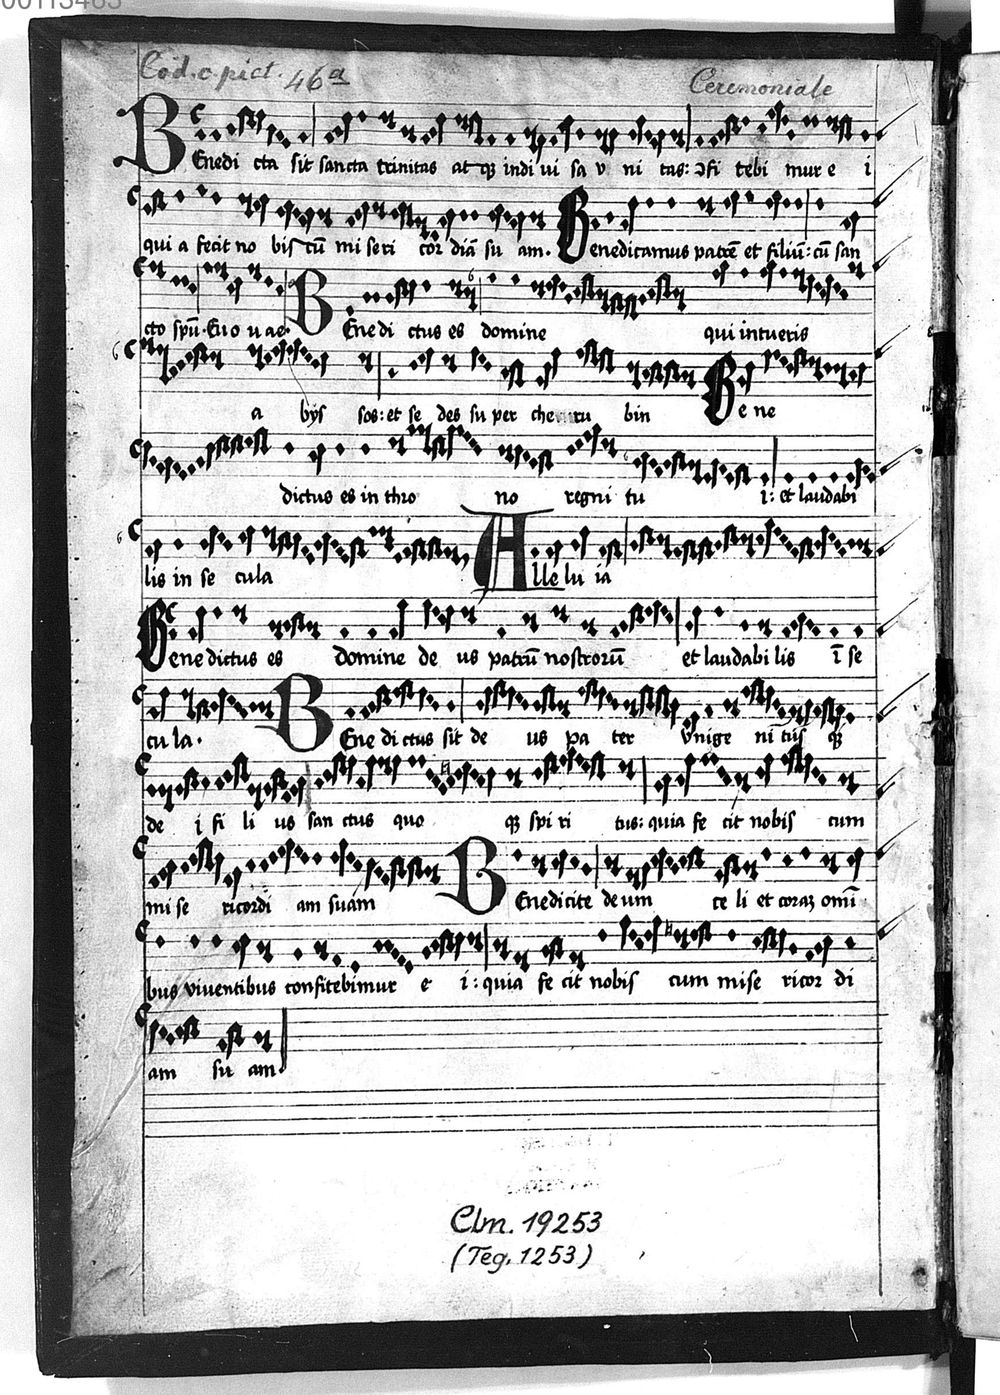 00113463
Cod. c. pict. 46a Ceremoniale
BEnedi cta sit sancta trinitas at q̃ʒ indi ui sa v ni tas: ↄfi tebi mur e i
qui a fecit no bis cũ mi seri cor diã su am. Benedicamus patrẽ et filiũ: cũ san
cto spũ. Euo u ae. BEnedi ctus es domine qui intueris
a bys sos: et se des su per che ru bin Be ne
dictus es in thro no regni tu i: et laudabi
lis in se cula Alle lu ia
Bene dictus es domine de us patrũ nostrorũ et laudabi lis ĩ se
cu la. BEne di ctus sit de us pa ter vnige ni tus q̃ʒ
de i fi li us san ctus quo q̃ʒ spi ri tus: quia fe cit nobis cum
mi se ricordi am suam BEnedicite de um ce li et coraʒ omĩ
bus viventibus confitebimur e i: quia fe cit nobis cum mise ricor di
am su am.
Clm. 19253
(Teg. 1253)